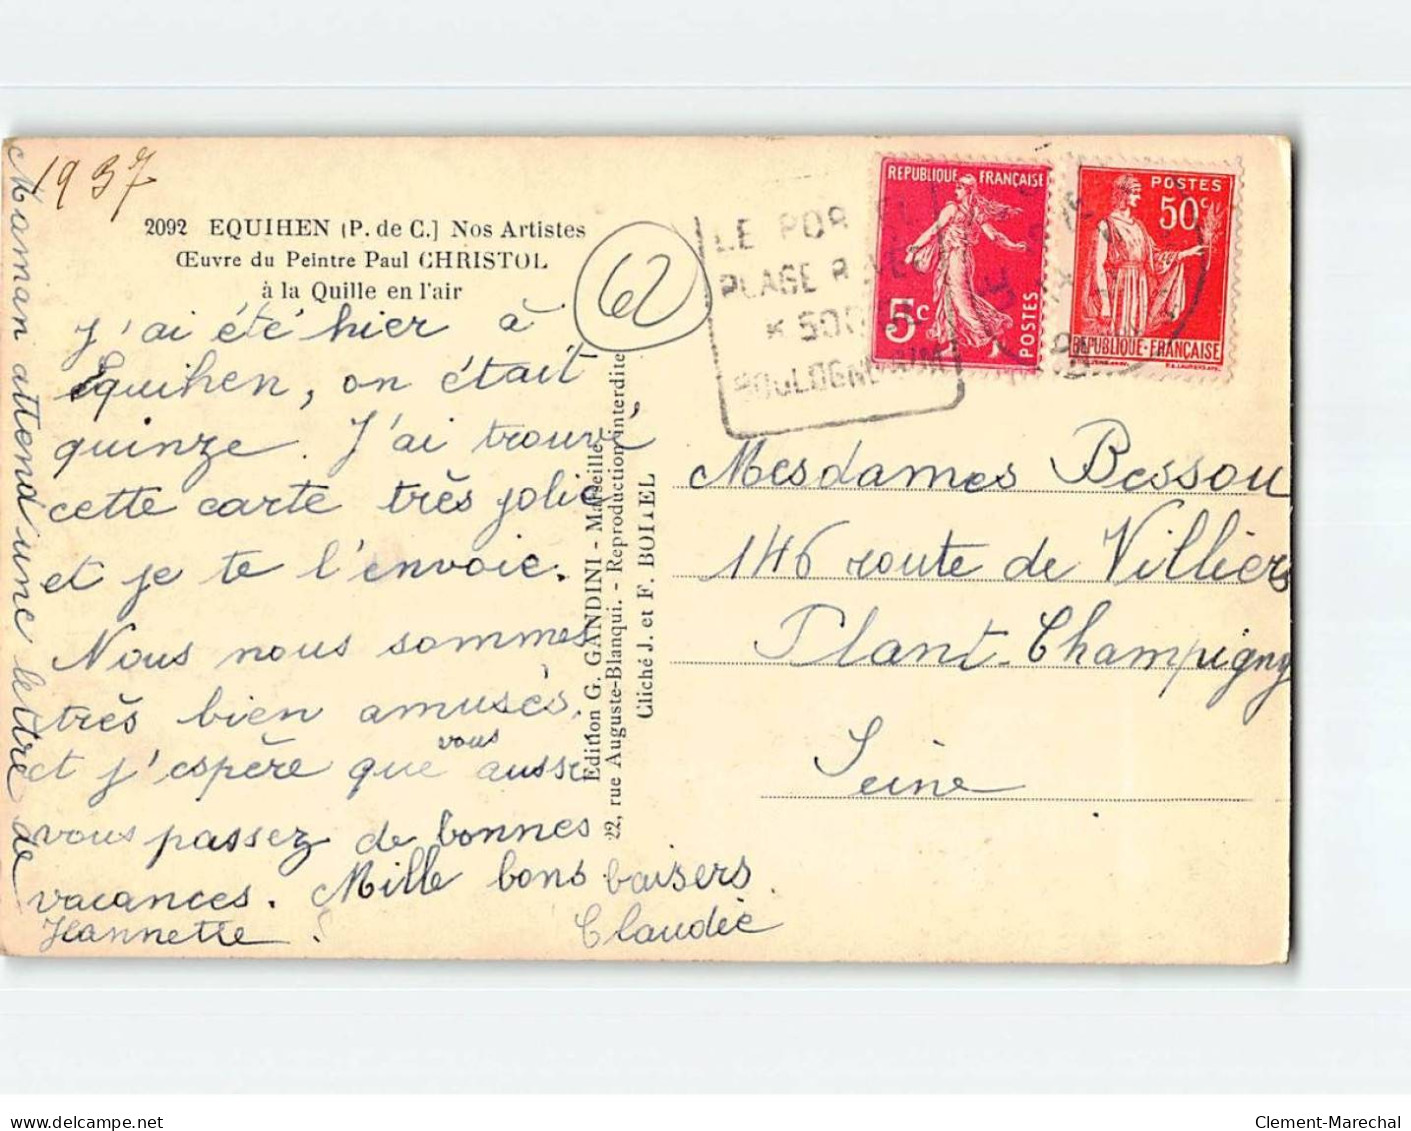 1937
2092 EQUIHEN (P. de C.) Nos Artistes
Œuvre du Peintre Paul CHRISTOL
à la Quille en l'air
62
J'ai été hier à
Equihen, on était
quinze. J'ai trouvé
cette carte très jolie
et je te l'envoie.
Nous nous sommes
très bien amusés.
et j'espère que vous aussi
vous passez de bonnes
vacances. Mille bons baisers.
Claudie
Maman attend une lettre de
Hannette.
Edition G. GANDINI - Marseille
22, rue Auguste-Blanqui. - Reproduction interdite
Cliché J. et F. BOITEL
LE POR EL
PLAGE R
BOULOGNE
REPUBLIQUE FRANÇAISE
5c
POSTES
POSTES
50c
REPUBLIQUE-FRANÇAISE
Mesdames Bessou
146 route de Villiers
Plant-Champigny
Seine
delcampe.net
Clement-Marechal